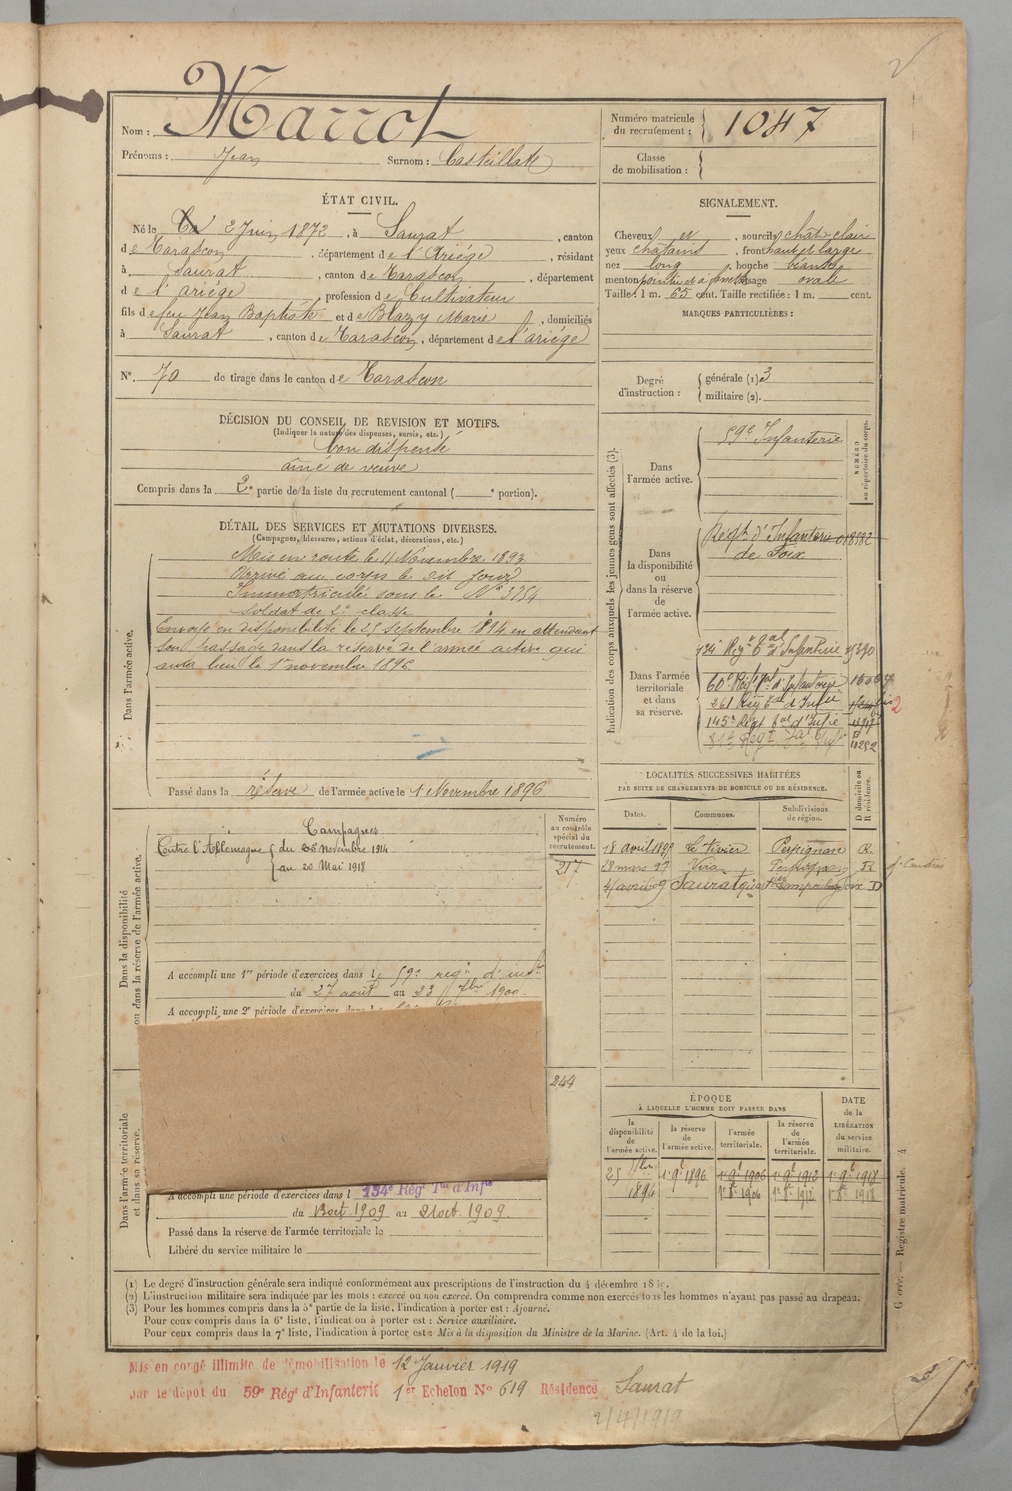 Nom : Marrot
Prénoms : Jean Surnom : Casteillate
Numéro matricule du recrutement : 1047
Classe de mobilisation :
ÉTAT CIVIL.
Né le 2 Juin 1872, à Saurat, canton
de Tarascon, département de l'Ariège, résidant
à Saurat, canton de Tarascon, département
de l'ariège, profession de Cultivateur
fils de feu Jean Baptiste et de Blazy Marie, domiciliés
à Saurat, canton de Tarascon, département de l'ariège
N° 70 de tirage dans le canton de Tarascon
SIGNALEMENT.
Cheveux et, sourcils chât-clair
yeux chatains, front haut et large
nez long, bouche béante
menton visage ovale
Taille : 1 m. 65 cent. Taille rectifiée : 1 m. cent.
MARQUES PARTICULIÈRES :
Degré d'instruction : générale (1) 3
militaire (2).
DÉCISION DU CONSEIL DE REVISION ET MOTIFS.
(Indiquer la nature des dispenses, sursis, etc.)
bon dispensé
ainé de veuve
Compris dans la 2e partie de la liste du recrutement cantonal ( e portion).
DÉTAIL DES SERVICES ET MUTATIONS DIVERSES.
(Campagnes, blessures, actions d'éclat, décorations, etc.)
Dans l'armée active.
Mis en route le 11 Novembre 1893
Arrivé au corps le dit jour
Immatriculé sous le N° 3754
Soldat de 2e classe
Envoyé en disponibilité le 25 Septembre 1894 en attendant
son passage dans la réserve de l'armée active qui
aura lieu le 1er novembre 1896.
Passé dans la réserve de l'armée active le 1 Novembre 1896
Indication des corps auxquels les jeunes gens sont affectés (3).
NUMÉRO au répertoire du corps.
Dans l'armée active.
59e Infanterie
Dans la disponibilité ou dans la réserve de l'armée active.
Regt. d'Infanterie 018582
de Foix
Dans l'armée territoriale et dans sa réserve.
134e Regt tal d'Infanterie
60e Regt tal d'Infanterie
261 Reg tal d'Infie
145e Regt tal d'Infie
LOCALITÉS SUCCESSIVES HABITÉES
PAR SUITE DE CHANGEMENTS DE DOMICILE OU DE RÉSIDENCE.
Dates. Communes. Subdivisions de région. D domicile ou R résidence.
18 avril 1895 Le Vivier Perpignan R
28 mars 97 Vira Perpignan R
4 avril 99 Saurat Foix D
Dans la disponibilité ou dans la réserve de l'armée active.
Numéro au contrôle spécial du recrutement.
217
Campagnes
Contre l'Allemagne du 25 Novembre 1914
au 20 Mai 1918
A accompli une 1re période d'exercices dans le 59e regt d'infie
du 27 août au 23 7bre 1900.
A accompli une 2e période d'exercices dans le
244
Dans l'armée territoriale et dans sa réserve.
A accompli une période d'exercices dans l 134e Régt Tal d'Infie
du 13 oct 1909 au 21 oct 1909
Passé dans la réserve de l'armée territoriale le
Libéré du service militaire le
ÉPOQUE
À LAQUELLE L'HOMME DOIT PASSER DANS
la disponibilité de l'armée active. la réserve de l'armée active. l'armée territoriale. la réserve de l'armée territoriale. DATE de la LIBÉRATION du service militaire.
25 7bre 1894 1er 9bre 1896 1er 9bre 1906 1er 9bre 1912 1er 9bre 1918
1er 8bre 1906 1er 8bre 1912 1er 8bre 1918
(1) Le degré d'instruction générale sera indiqué conformément aux prescriptions de l'instruction du 4 décembre
(2) L'instruction militaire sera indiquée par les mots : exercé ou non exercé. On comprendra comme non exercés tous les hommes n'ayant pas passé au drapeau.
(3) Pour les hommes compris dans la 5e partie de la liste, l'indication à porter est : Ajourné.
Pour ceux compris dans la 6e liste, l'indication à porter est : Service auxiliaire.
Pour ceux compris dans la 7e liste, l'indication à porter est : Mis à la disposition du Ministre de la Marine. (Art. 4 de la loi.)
Registre matricule. 4
Mis en congé illimité de démobilisation le 12 Janvier 1919
par le dépôt du 59e Régt d'Infanterie 1er Echelon N° 619 Résidence Saurat
2/4/1919